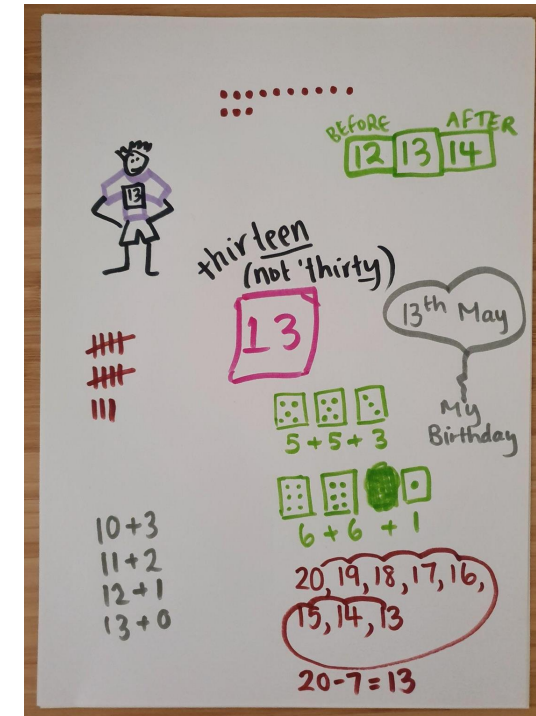 BEFORE AFTER
12 13 14
13
thirteen
(not 'thirty)
13
13th May
My
Birthday
5+5+3
6+6+1
10+3
11+2
12+1
13+0
20, 19, 18, 17, 16,
15, 14, 13
20-7=13